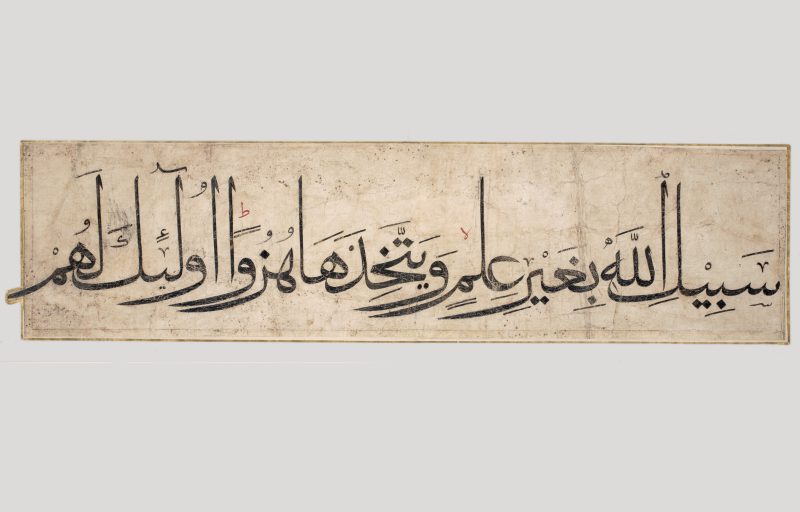 سَبِيْلِ اللّٰهِ بِغَيْرِ عِلْمٍ وَيَتَّخِذَهَا هُزُوًا اُولٰٓئِكَ لَهُمْ